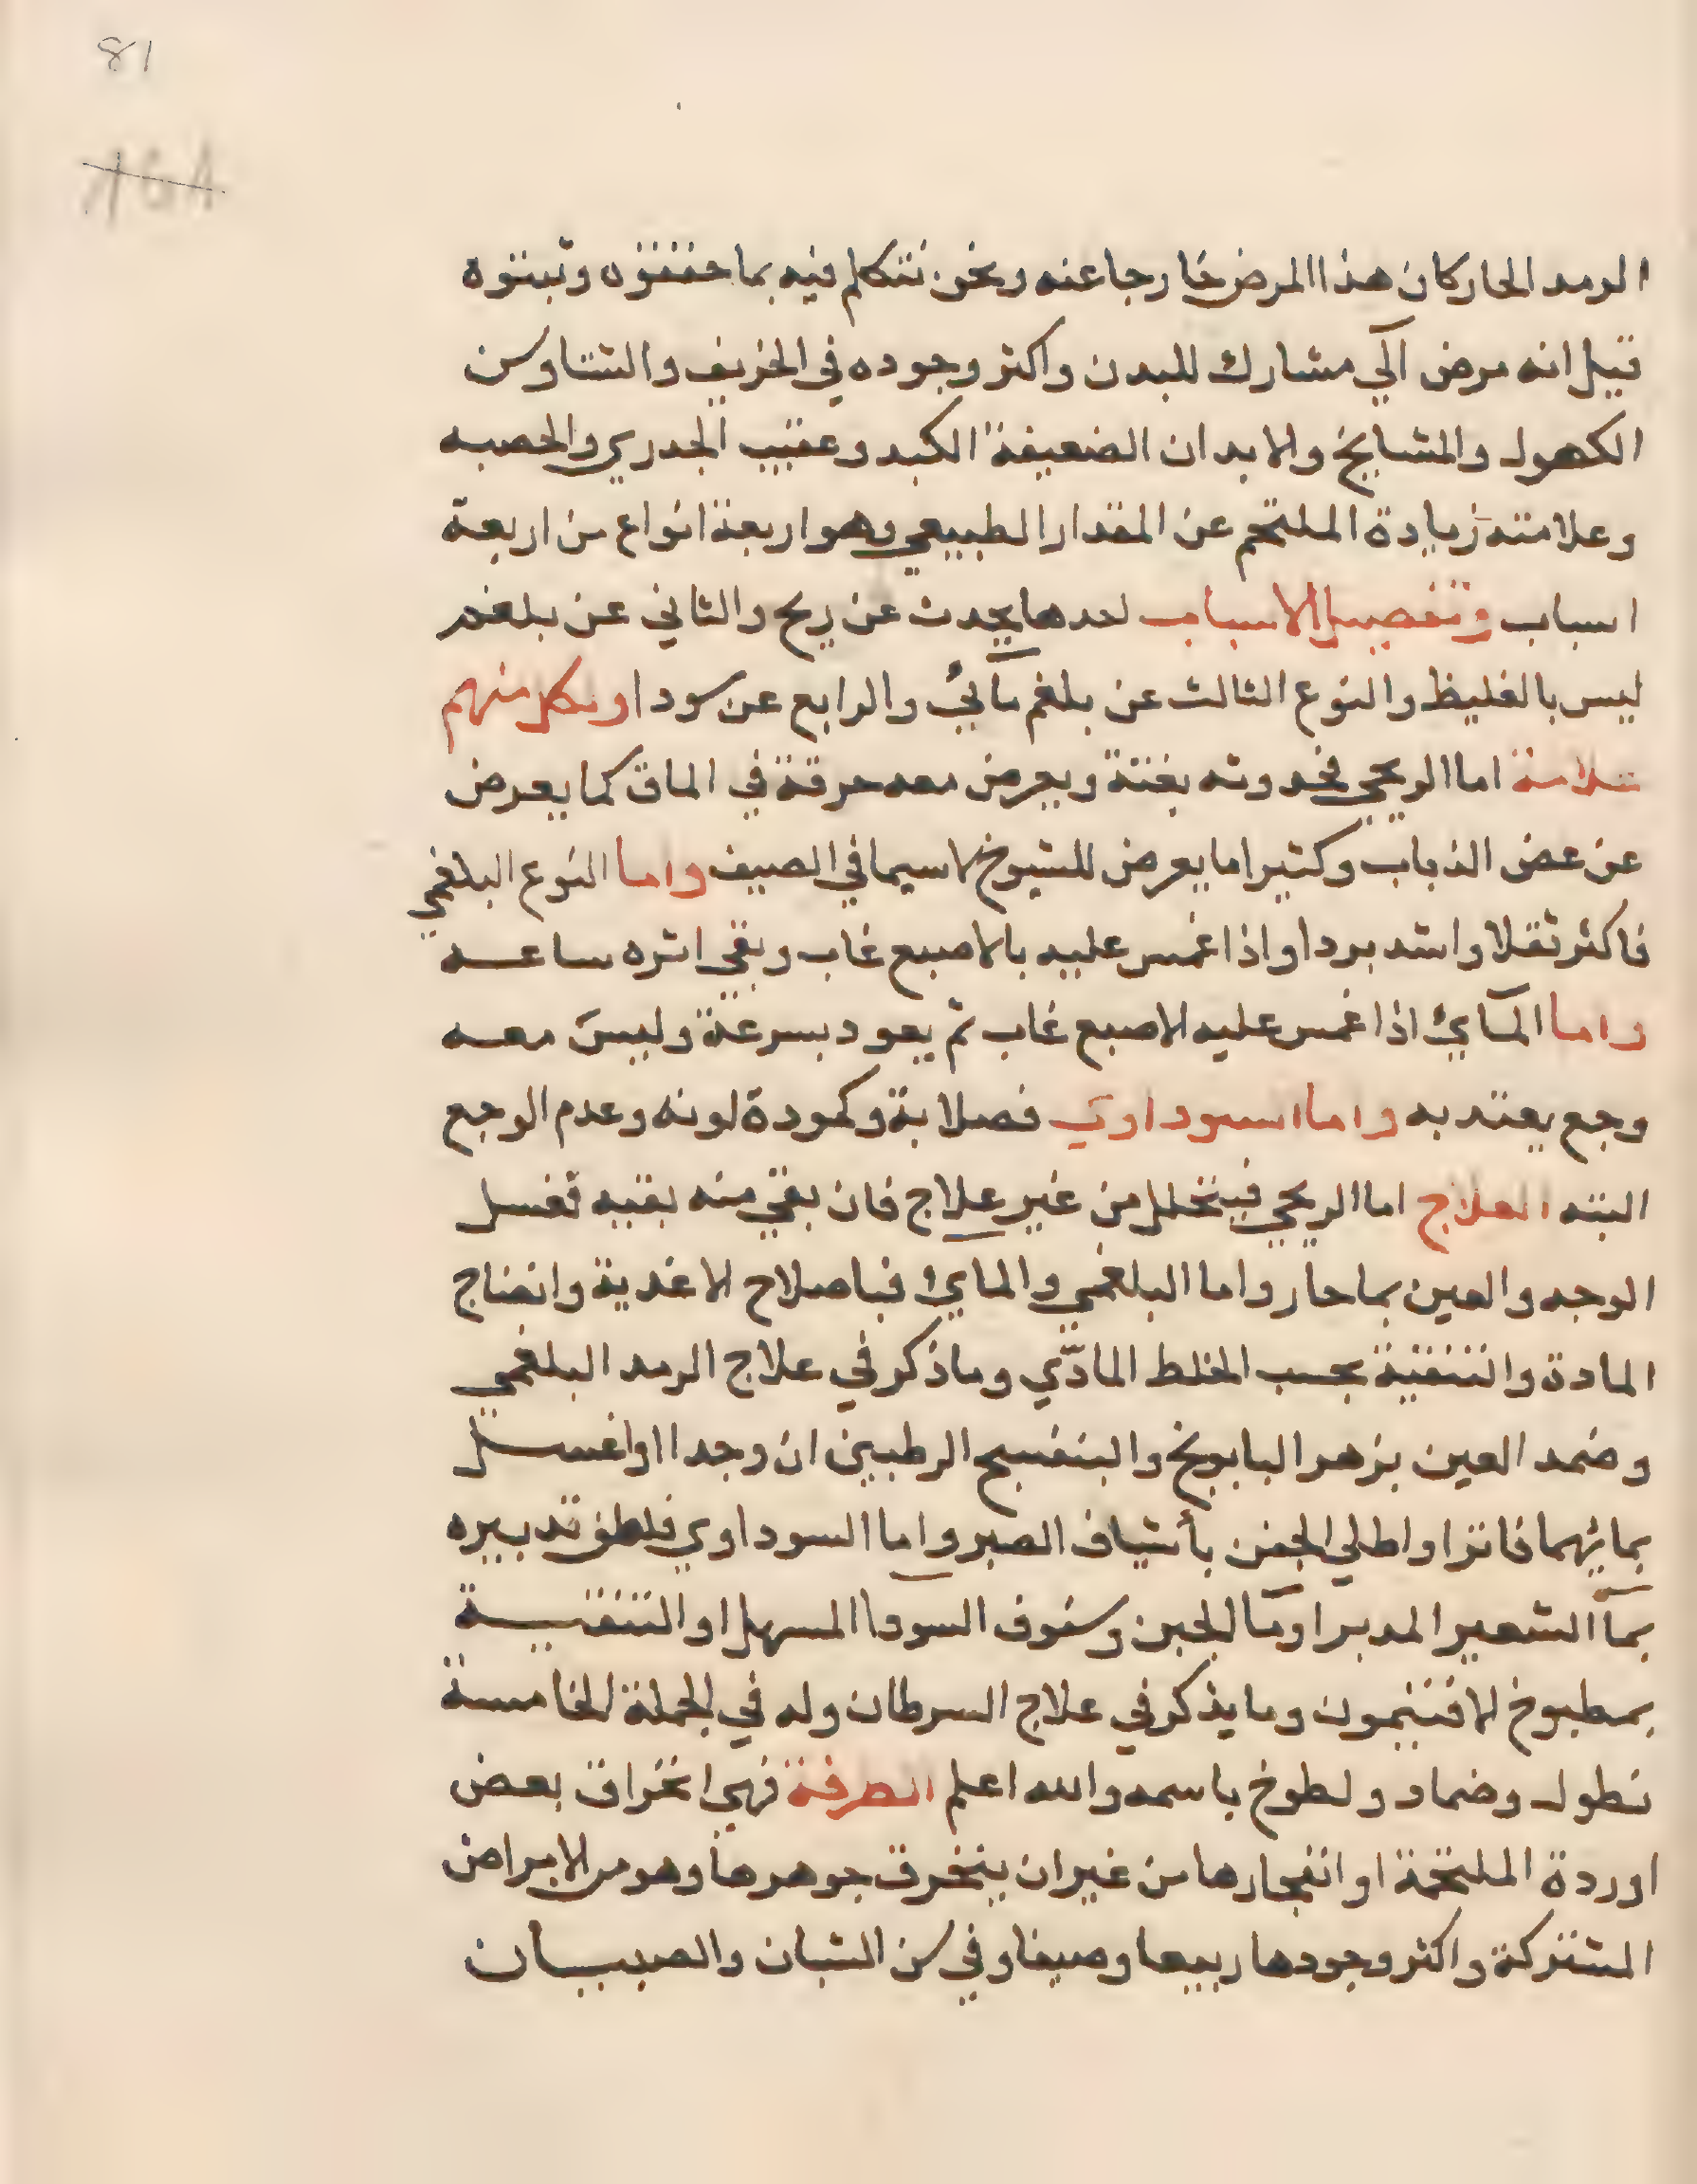 81
الرمد الحار كان هذا المرض خارجا عنه ونحن نتكلم فيه بما حققوه وثبتوه
قيل انه مرض آلي مشارك للبدن واكثر وجوده في الخريف والشتا وسن
الكهول والمشايخ والابدان الضعيفة الكبد وعقيب الجدري والحصبه
وعلامته زيادة الملتحم عن المقدار الطبيعي وهو اربعة انواع من اربعة
اسباب وتفصيل الاسباب احدها يحدث عن ريح والثاني عن بلغم
ليس بالغليظ والنوع الثالث عن بلغم مآئي والرابع عن سودا ولكل منهم
علامة اما الريحي فحدوثه بغتة ويعرض معه حرقة في الماق كما يعرض
عن عض الذباب وكثيرا ما يعرض للشيوخ لاسيما في الصيف واما النوع البلغمي
فاكثر ثقلا واشد بردا واذا غمس عليه بالاصبع غاب وبقي اثره ساعه
واما المآئي اذا غمس عليه الاصبع غاب ثم يعود بسرعة وليس معه
وجع يعتد به واما السوداوي فصلابة وكمودة لونه وعدم الوجع
البته العلاج اما الريحي فيتحلل من غير علاج فان بقي منه بقيه تغسل
الوجه والعين بماحار واما البلغمي والمايئ فباصلاح الاغذية وانضاج
المادة والتنقية بحسب الخلط المادّي وما ذكر في علاج الرمد البلغمي
وضمد العين بزهر البابونج والبنفسج الرطبين ان وجدا او اغسل
بمائهما فاترا واطلي الجفن بأشياف الصبر واما السوداوي فلطف تدبيره
بمآ الشعير المدبر او مآ الجبن وسفوف السودا المسهل او التنقيــة
بمطبوخ الافتيمون وما يذكر في علاج السرطان وله في الجملة الخامسة
نطول وضماد ولطوخ باسمه والله اعلم الطرفة فهي انخراق بعض
اوردة الملتحمة او انفجارها من غير ان ينخرق جوهرها وهو من الامراض
المشتركة واكثر وجودها ربيعا وصيفا وفي سن الشبان والصبيــان